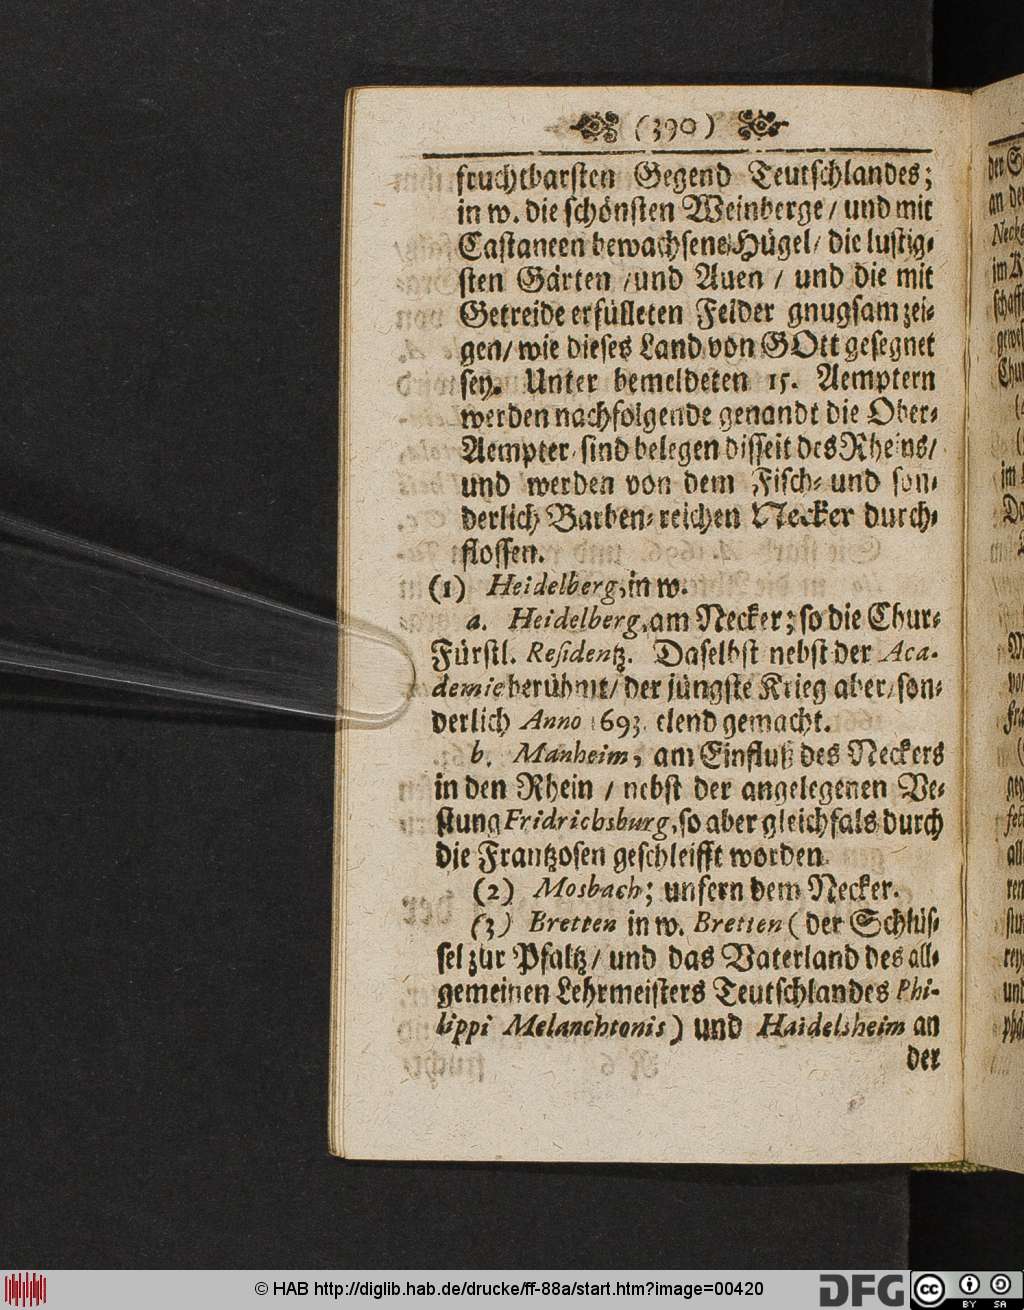 (390)
fruchtbarsten Gegend Teutschlandes;
in w. die schönsten Weinberge / und mit
Castaneen bewachsene Hügel / die lustig-
sten Gärten / und Auen / und die mit
Getreide erfülleten Felder gnugsam zei-
gen / wie dieses Land von GOtt gesegnet
sey. Unter bemeldeten 15. Aemptern
werden nachfolgende genandt die Ober-
Aempter / sind belegen disseit des Rheins /
und werden von dem Fisch- und son-
derlich Barben-reichen Necker durch-
flossen.
(1) Heidelberg, in w.
a. Heidelberg, am Necker; so die Chur-
Fürstl. Residentz. Daselbst nebst der Aca-
demie berühmt / der jüngste Krieg aber / son-
derlich Anno 1693. elend gemacht.
b. Manheim, am Einfluß des Neckers
in den Rhein / nebst der angelegenen Ve-
stung Fridrichsburg, so aber gleichfals durch
die Frantzosen geschleifft worden.
(2) Mosbach; unfern dem Necker.
(3) Bretten in w. Bretten (der Schlüs-
sel zur Pfaltz / und das Vaterland des all-
gemeinen Lehrmeisters Teutschlandes Phi-
lippi Melanchtonis) und Haidelsheim an
der
© HAB http://diglib.hab.de/drucke/ff-88a/start.htm?image=00420
DFG
cc BY SA